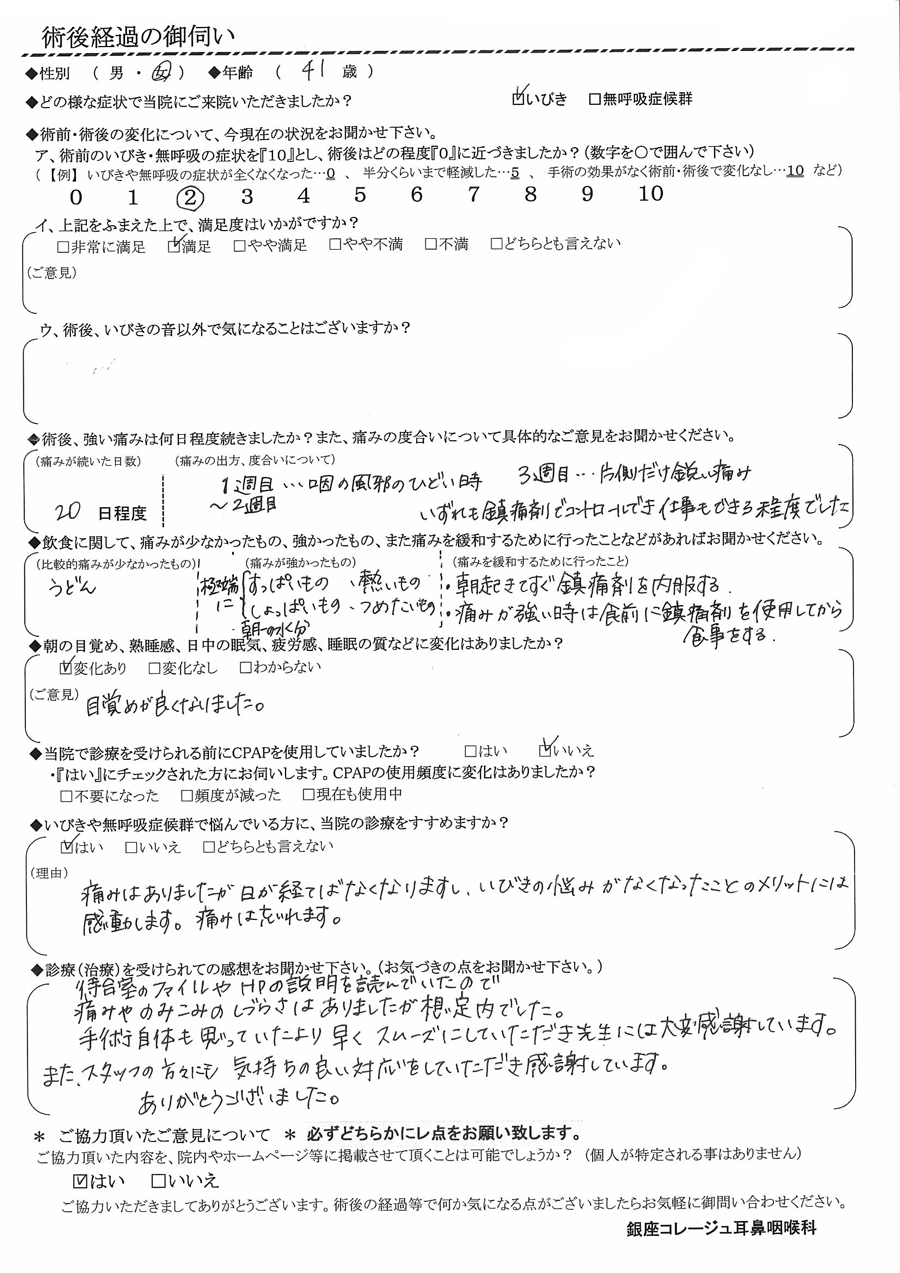 術後経過の御伺い
◆性別 （ 男 ・ 女 ） ◆年齢 （ 41 歳 ）
◆どの様な症状で当院にご来院いただきましたか？ ☑いびき □無呼吸症候群
◆術前・術後の変化について、今現在の状況をお聞かせ下さい。
ア、術前のいびき・無呼吸の症状を『10』とし、術後はどの程度『0』に近づきましたか？（数字を○で囲んで下さい）
（【例】 いびきや無呼吸の症状が全くなくなった…0 、 半分くらいまで軽減した…5 、 手術の効果がなく術前・術後で変化なし…10 など）
0 1 2 3 4 5 6 7 8 9 10
イ、上記をふまえた上で、満足度はいかがですか？
□非常に満足 ☑満足 □やや満足 □やや不満 □不満 □どちらとも言えない
（ご意見）
ウ、術後、いびきの音以外で気になることはございますか？
◆術後、強い痛みは何日程度続きましたか？また、痛みの度合いについて具体的なご意見をお聞かせください。
（痛みが続いた日数） （痛みの出方、度合いについて）
1週目…咽の風邪のひどい時 3週目…片側だけ鋭い痛み
～2週目
20 日程度 いずれも鎮痛剤でコントロールでき仕事もできる程度でした
◆飲食に関して、痛みが少なかったもの、強かったもの、また痛みを緩和するために行ったことなどがあればお聞かせください。
（比較的痛みが少なかったもの） （痛みが強かったもの） （痛みを緩和するために行ったこと）
うどん 極端に すっぱいもの 、熱いもの ・朝起きてすぐ鎮痛剤を内服する.
しょっぱいもの 、つめたいもの ・痛みが強い時は食前に鎮痛剤を使用してから
朝の水分 食事をする.
◆朝の目覚め、熟睡感、日中の眠気、疲労感、睡眠の質などに変化はありましたか？
☑変化あり □変化なし □わからない
（ご意見） 目覚めが良くなりました。
◆当院で診療を受けられる前にCPAPを使用していましたか？ □はい ☑いいえ
・『はい』にチェックされた方にお伺いします。CPAPの使用頻度に変化はありましたか？
□不要になった □頻度が減った □現在も使用中
◆いびきや無呼吸症候群で悩んでいる方に、当院の診療をすすめますか？
☑はい □いいえ □どちらとも言えない
（理由）
痛みはありましたが日が経てばなくなりますし、いびきの悩みがなくなったことのメリットには
感動します。痛みは忘れます。
◆診療（治療）を受けられての感想をお聞かせ下さい。（お気づきの点をお聞かせ下さい。）
待合室のファイルやHPの説明を読んでいたので
痛みやのみこみのしづらさはありましたが想定内でした。
手術自体も思っていたより早くスムーズにしていただき先生には大変感謝しています。
また、スタッフの方々にも気持ちの良い対応をしていただき感謝しています。
ありがとうございました。
＊ ご協力頂いたご意見について ＊ 必ずどちらかにレ点をお願い致します。
ご協力頂いた内容を、院内やホームページ等に掲載させて頂くことは可能でしょうか？ （個人が特定される事はありません）
☑はい □いいえ
ご協力いただきましてありがとうございます。術後の経過等で何か気になる点がございましたらお気軽に御問い合わせください。
銀座コレージュ耳鼻咽喉科